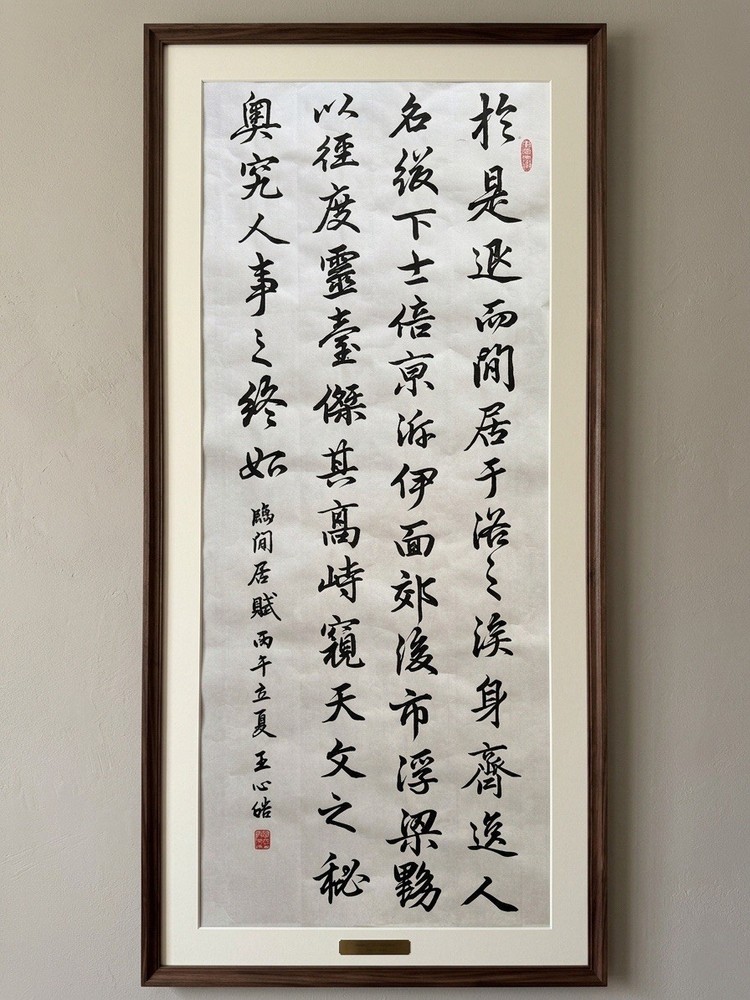 於是退而閒居于洛之涘身齊逸人
名綴下士倍京泝伊面郊後市浮梁黝
以徑度靈臺傑其高峙窺天文之秘
奧究人事之終始
臨閒居賦丙午立夏王心皓